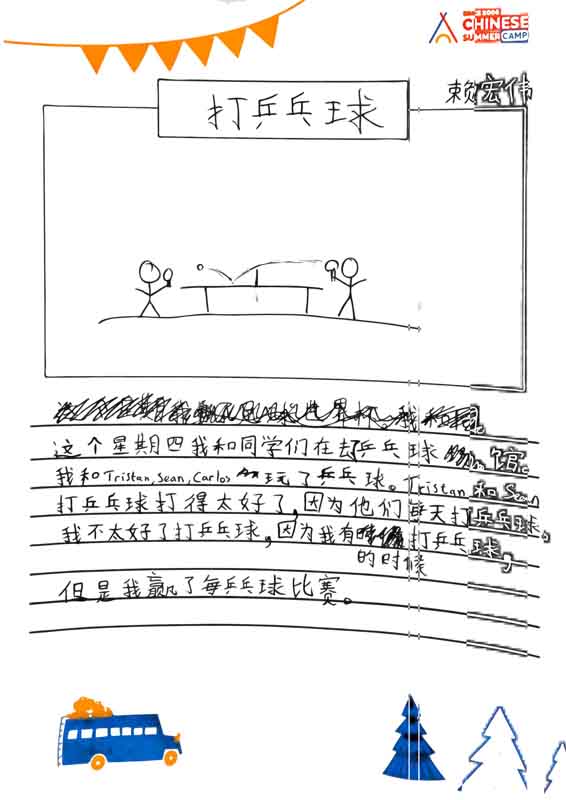 SINCE 2004
CHINESE
SUMMER CAMP
打乒乓球
赖宏伟
这个星期四我和同学们在去乒乓球馆。
我和Tristan, Sean, Carlos 玩了乒乓球。Tristan 和 Sean
打乒乓球打得太好了,因为他们每天打乒乓球。
我不太好了打乒乓球,因为我有打乒乓球,
的时候
但是我赢了每乒乓球比赛。